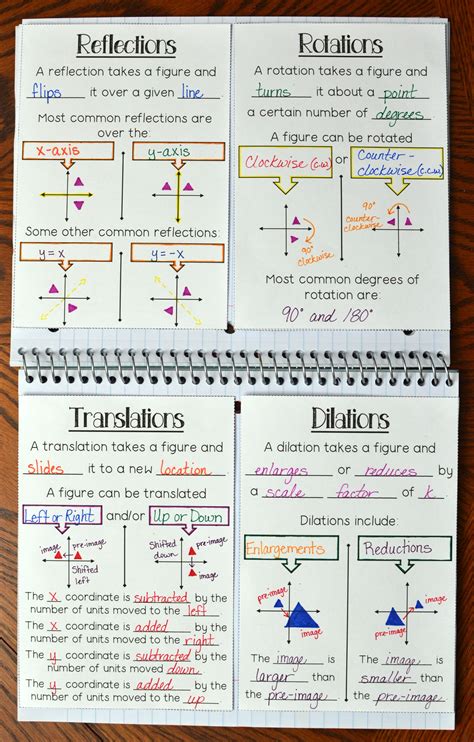 Reflections
A reflection takes a figure and
flips it over a given line.
Most common reflections are
over the:
x-axis
y-axis
Some other common reflections:
y = x
y = -x
Rotations
A rotation takes a figure and
turns it about a point
a certain number of degrees.
A figure can be rotated
Clockwise (c.w) or Counter-
clockwise (c.c.w)
90°
clockwise
90°
counter-
clockwise
Most common degrees of
rotation are:
90° and 180°
Translations
A translation takes a figure and
slides it to a new location.
A figure can be translated
Left or Right and/or Up or Down
image pre-image
Shifted
left
Shifted
down
pre-image
image
The x coordinate is subtracted by the
number of units moved to the left.
The x coordinate is added by the
number of units moved to the right.
The y coordinate is subtracted by the
number of units moved down.
The y coordinate is added by the
number of units moved to the up.
Dilations
A dilation takes a figure and
enlarges or reduces by
a scale factor of k.
Dilations include:
Enlargements
Reductions
pre-image
image
image
pre-image
The image is
larger than
the pre-image.
The image is
smaller than
the pre-image.